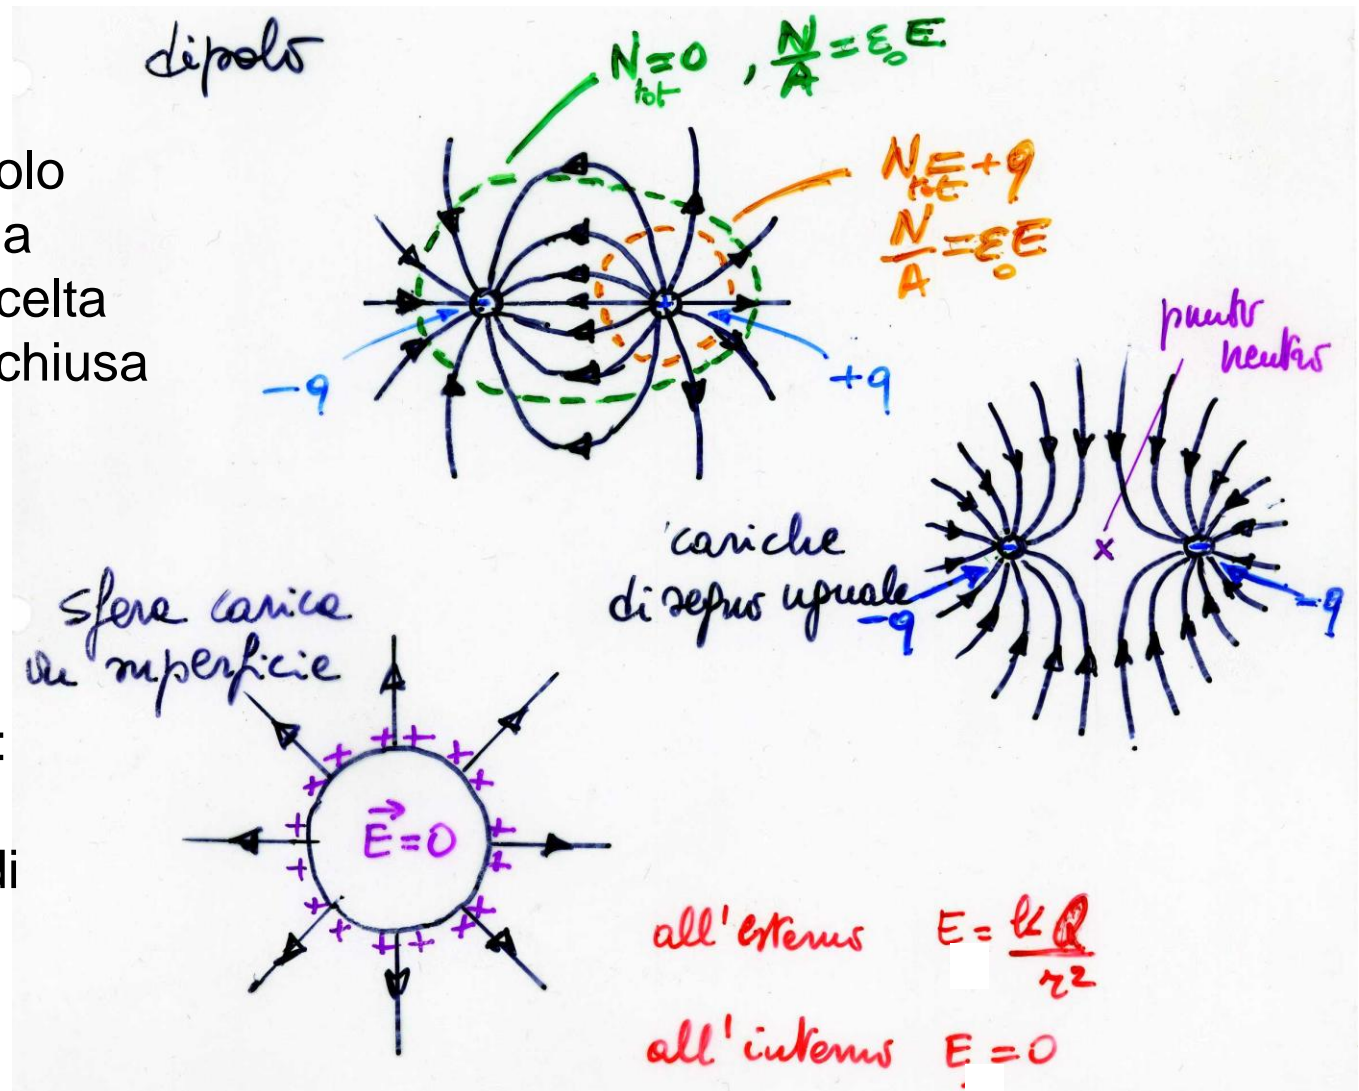 dipolo
N_tot = 0 , N/A = ε₀E
olo
a
celta
chiusa
N_tot = +q
N/A = ε₀E
-q
+q
punto
neutro
cariche
di segno uguale
-q
-q
sfera carica
in superficie
:
di
E⃗ = 0
all'esterno E = kQ/r²
all'interno E = 0